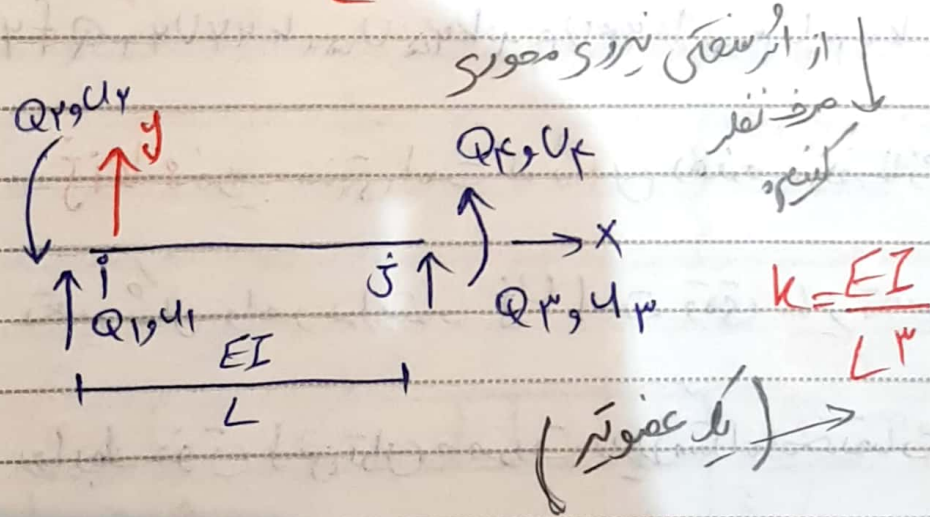 از اثر سختی نیروی محوری
صرف نظر
کنیم.
Q۲ و U۲
y
Q۴ و U۴
x
i
j
Q۱ و U۱
Q۳ و U۳
EI
L
K = EI / L۳
(یک عضو تیر)